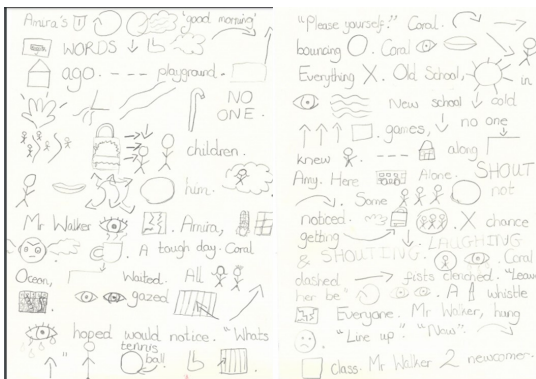 Amira's 'good morning'
WORDS
ago. playground.
NO
ONE.
children.
him.
Mr Walker . Amira,
. A tough day. Coral
Ocean, Waited. All
gazed
hoped would notice. "Whats
" tennis
ball
"Please yourself." Coral.
bouncing . Coral
Everything X. Old School, in
New school cold
games, no one
knew along
Amy. Here Alone. SHOUT
. Some not
noticed. . X chance
getting LAUGHING
& SHOUTING. . Coral
dashed fists clenched. "Leave
her be" . A whistle
Everyone. Mr Walker, hung
"Line up". "Now".
class. Mr Walker 2 newcomer.